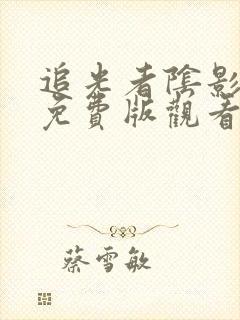 追光者陰影
免費版觀看
蔡雪敏